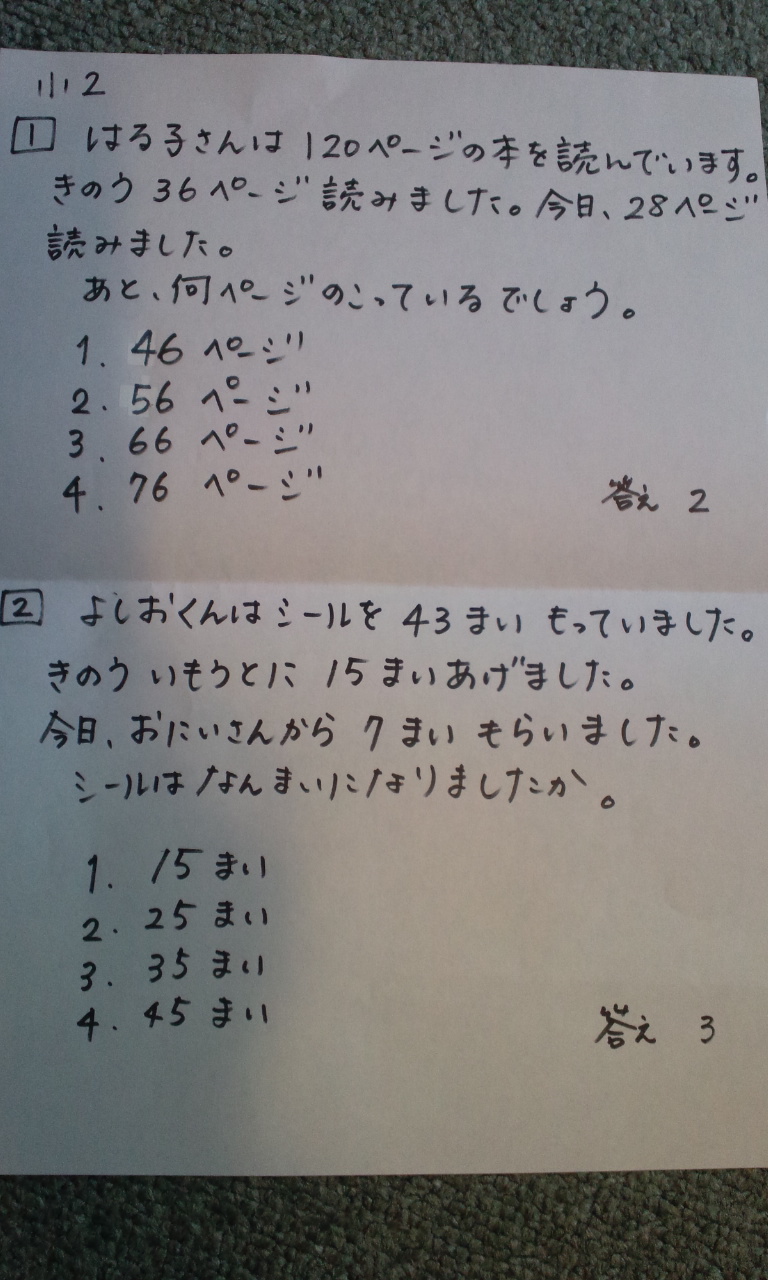 小2
1 はる子さんは120ページの本を読んでいます。
きのう36ページ読みました。今日、28ページ
読みました。
あと、何ページのこっているでしょう。
1. 46 ページ
2. 56 ページ
3. 66 ページ
4. 76 ページ
答え 2
2 よしおくんはシールを 43まい もっていました。
きのう いもうとに 15まいあげました。
今日、おにいさんから 7まい もらいました。
シールはなんまいになりましたか。
1. 15まい
2. 25まい
3. 35まい
4. 45まい
答え 3